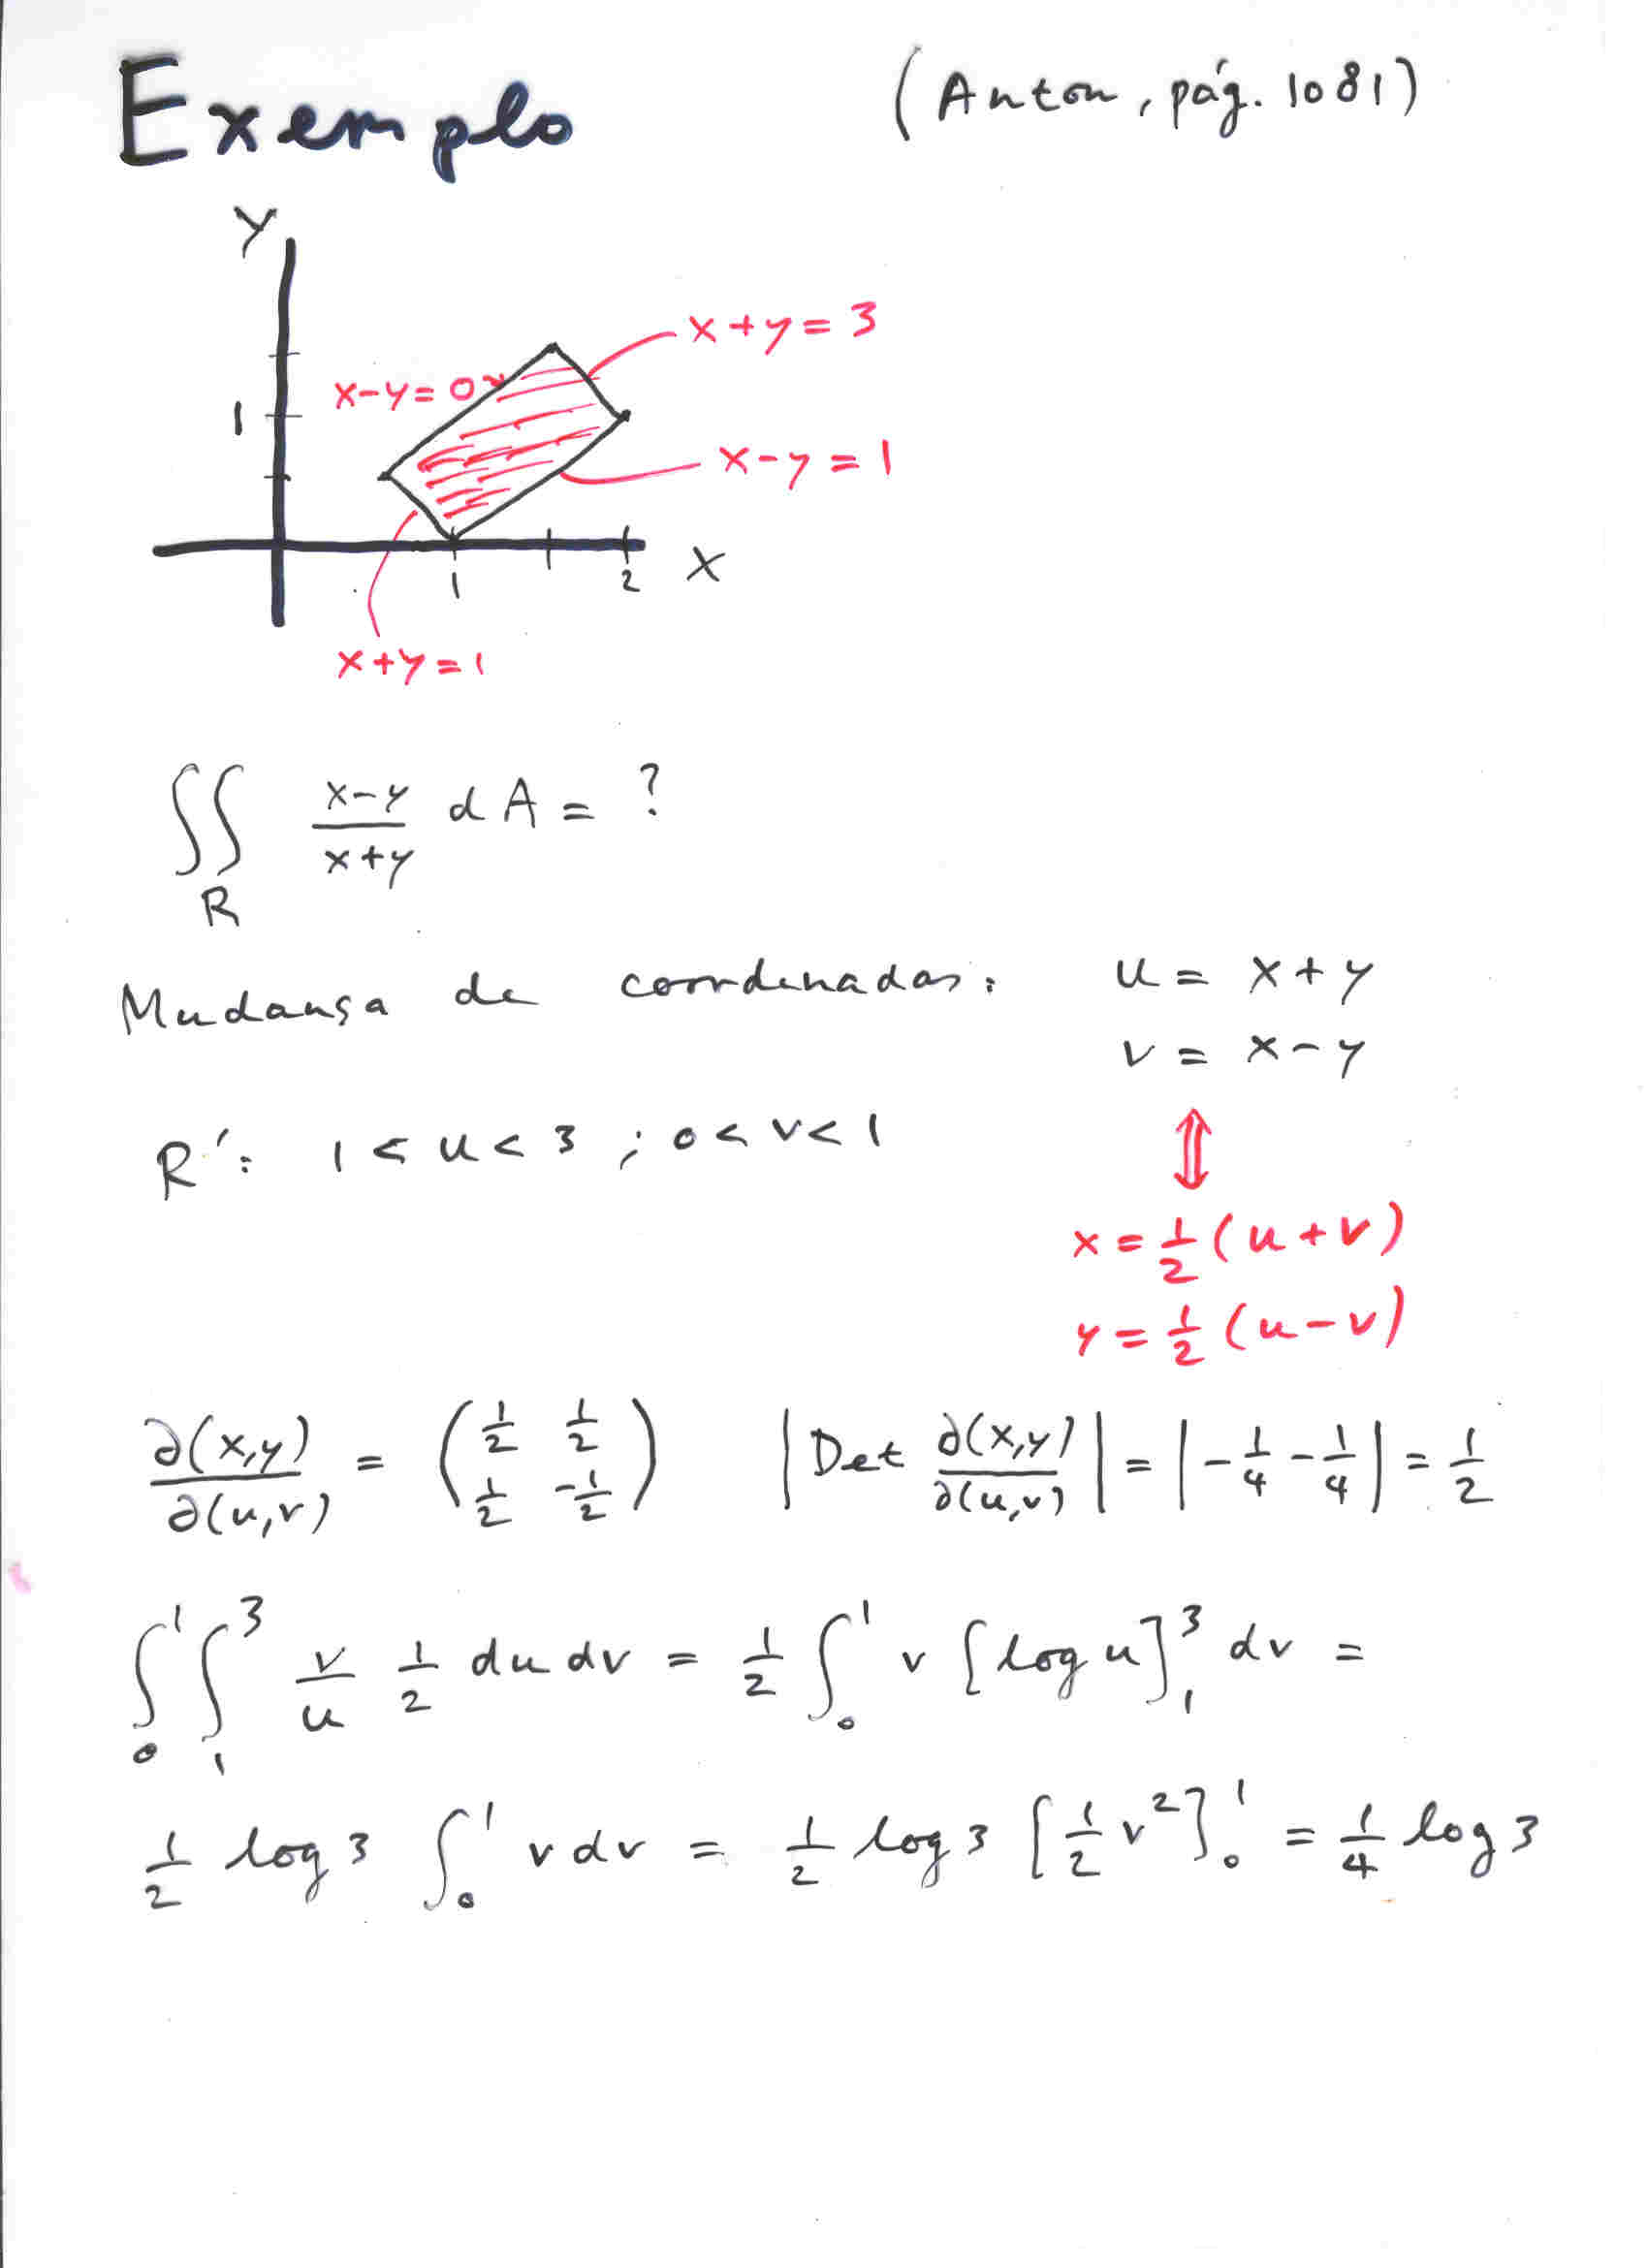 Exemplo (Anton, pág. 1081)
y
x+y=3
x-y=0
1
x-y=1
1 2 x
x+y=1
∫∫_R (x-y)/(x+y) dA = ?
Mudança de coordenadas: u = x+y
v = x-y
R': 1<u<3 ; 0<v<1
⇕
x = 1/2 (u+v)
y = 1/2 (u-v)
∂(x,y)/∂(u,v) = (1/2 1/2; 1/2 -1/2) |Det ∂(x,y)/∂(u,v)| = |-1/4 - 1/4| = 1/2
∫_0^1 ∫_1^3 v/u 1/2 du dv = 1/2 ∫_0^1 v [log u]_1^3 dv =
1/2 log 3 ∫_0^1 v dv = 1/2 log 3 [1/2 v^2]_0^1 = 1/4 log 3